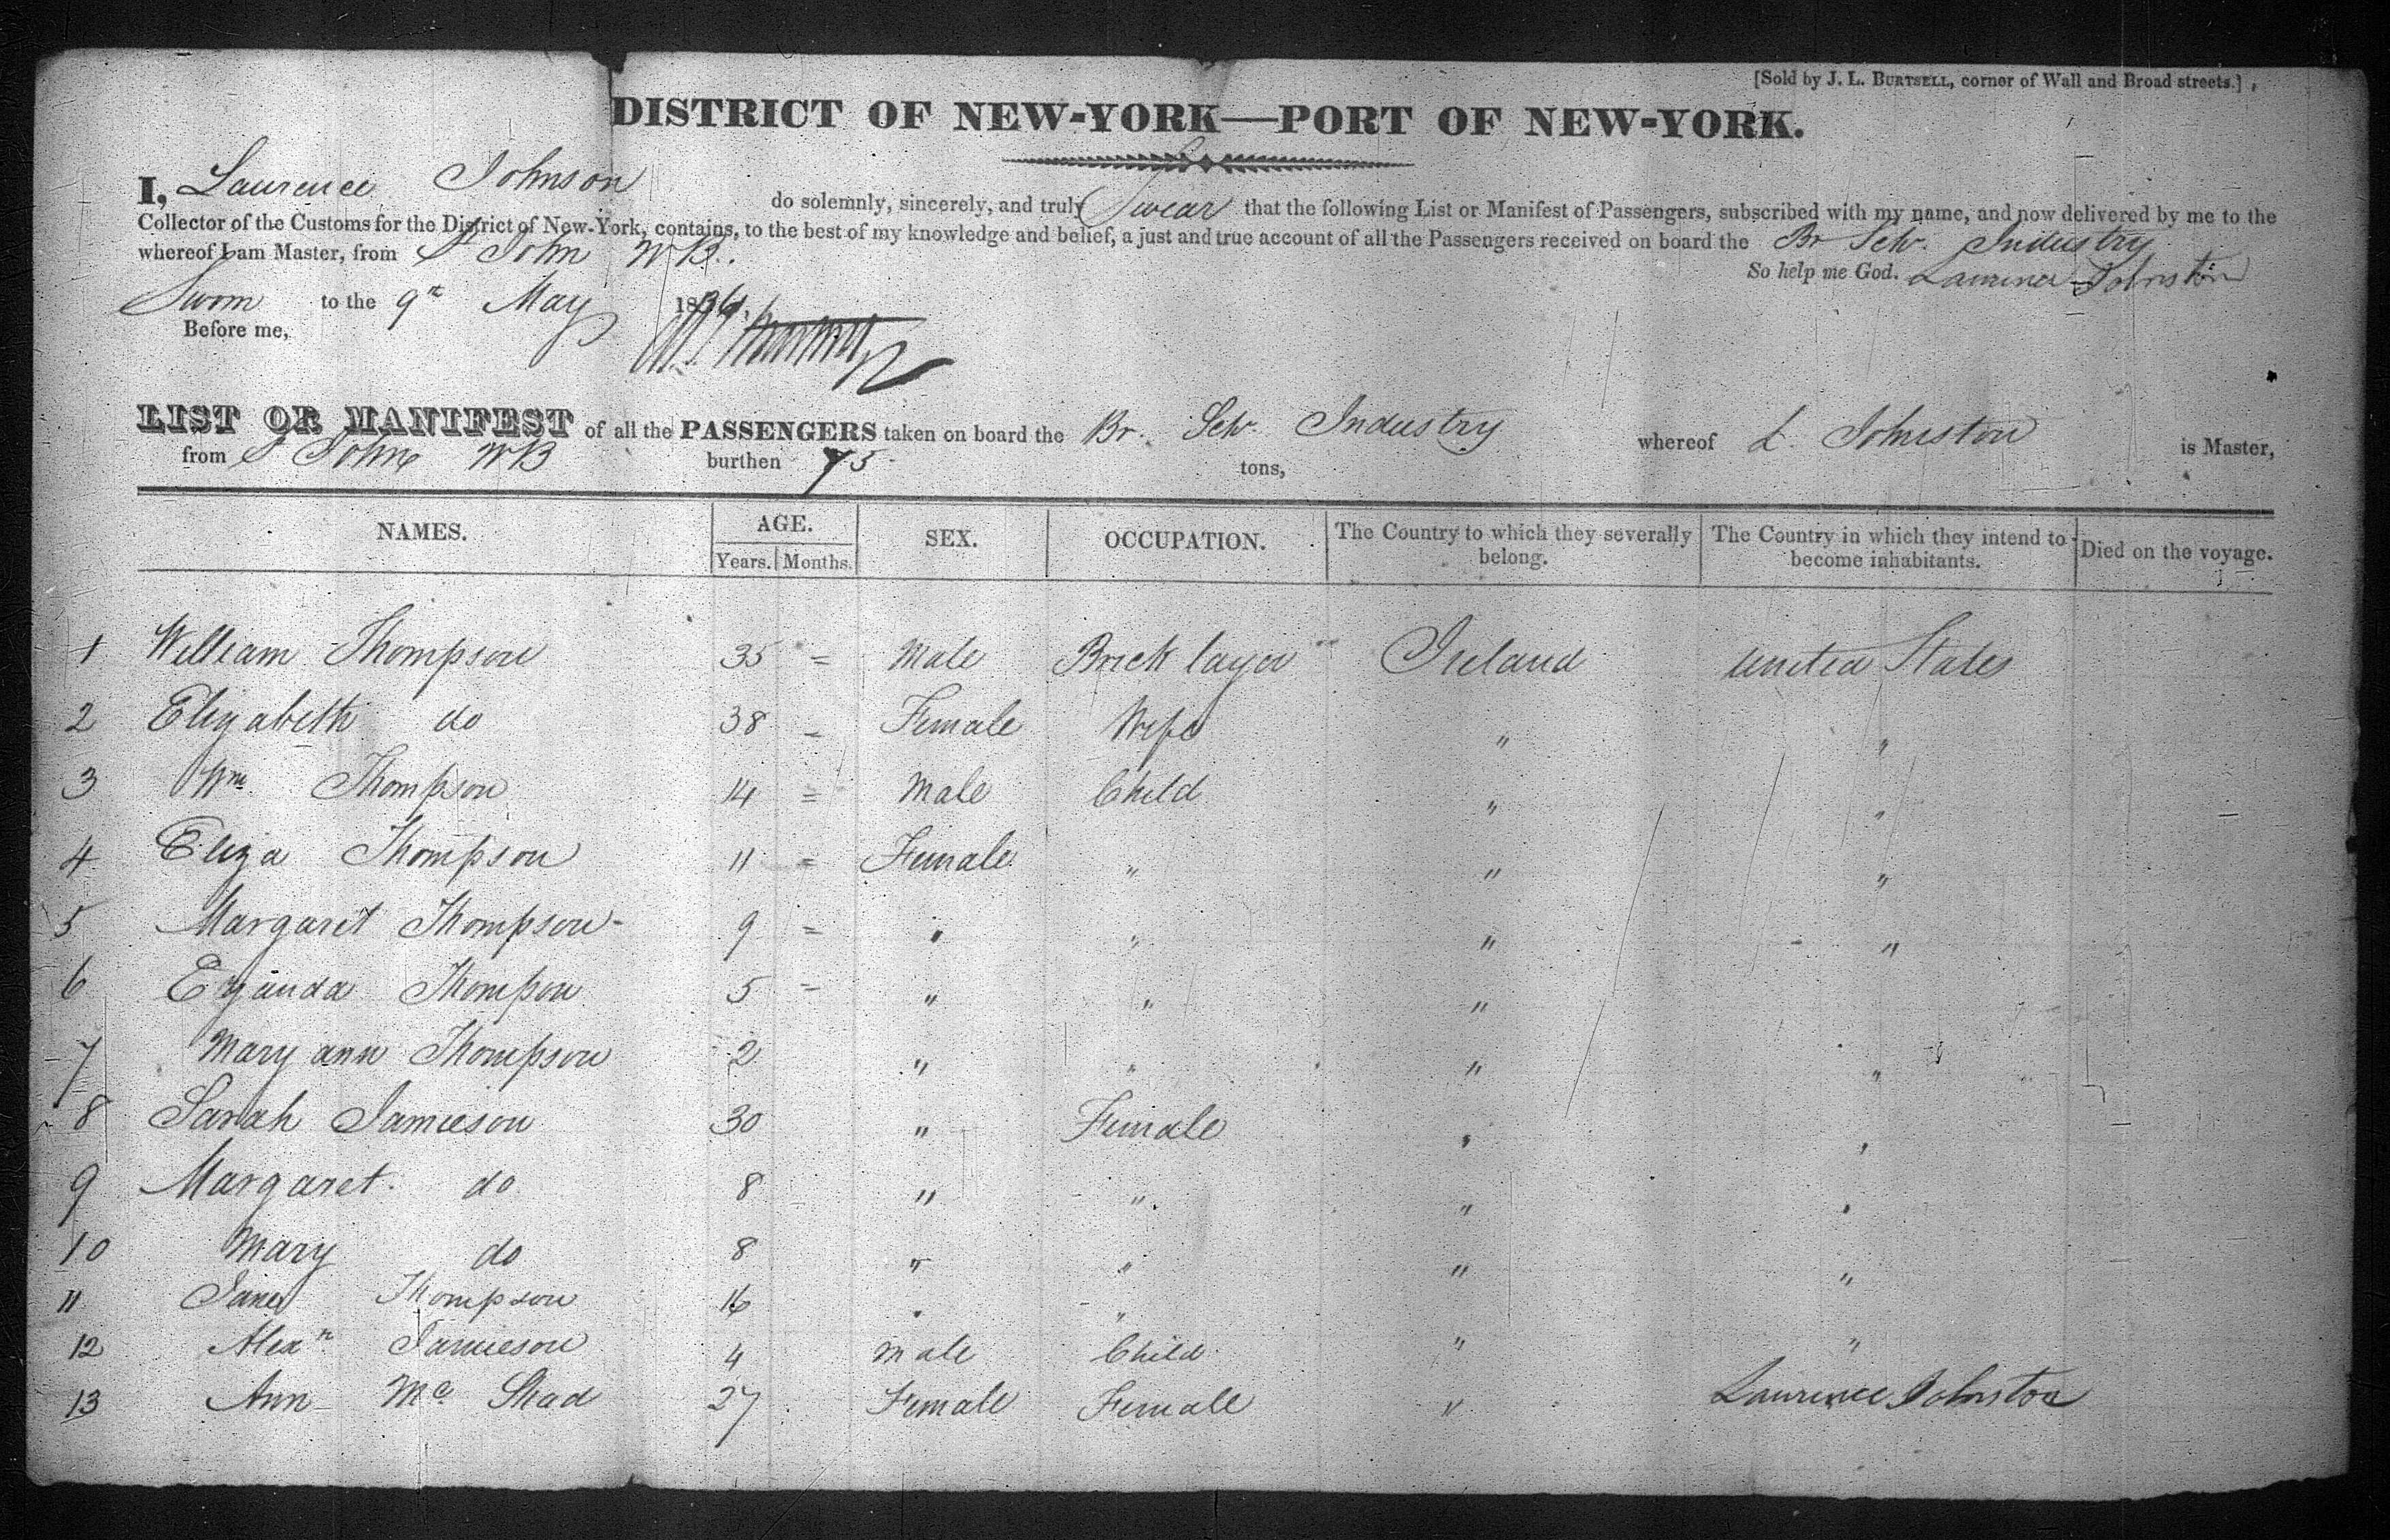 [Sold by J. L. BURTSELL, corner of Wall and Broad streets.]
DISTRICT OF NEW-YORK—PORT OF NEW-YORK.
I, Laurence Johnson do solemnly, sincerely, and truly Swear that the following List or Manifest of Passengers, subscribed with my name, and now delivered by me to the
Collector of the Customs for the District of New-York, contains, to the best of my knowledge and belief, a just and true account of all the Passengers received on board the Br Schr. Industry
whereof I am Master, from St John NB.
So help me God. Laurence Johnston
Sworn to the 9th May 1836.
Before me,
LIST OR MANIFEST of all the PASSENGERS taken on board the Br. Schr. Industry whereof L. Johnston is Master,
from St John NB burthen 75 tons,
NAMES. AGE. SEX. OCCUPATION. The Country to which they severally belong. The Country in which they intend to become inhabitants. Died on the voyage.
Years. Months.
1 William Thompson 35 = Male Brick layer Ireland United States
2 Elizabeth do 38 - Female Wife " "
3 Wm. Thompson 14 = Male Child " "
4 Eliza Thompson 11 = Female " " "
5 Margaret Thompson 9 = " " " "
6 Thompson 5 = " " " "
7 Mary ann Thompson 2 " " " "
8 Sarah Jamieson 30 " Female " "
9 Margaret do 8 " " " "
10 Mary do 8 " " " "
11 Jane Thompson 16 " " " "
12 Alexr Jamieson 4 Male Child " "
13 Ann Mc Shad 27 Female Female "
Laurence Johnston